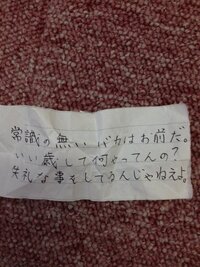 常識の無いバカはお前だ。
いい歳して何やってんの？
失礼な事をしてるんじゃねえよ。